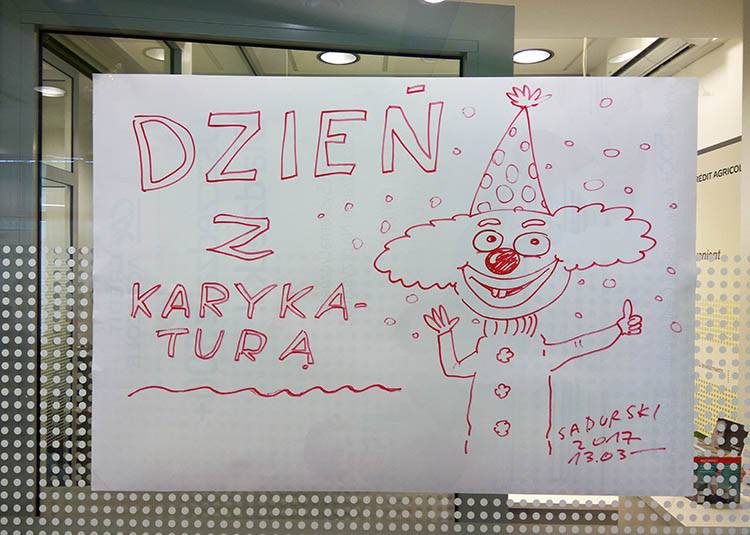 DZIEŃ
Z
KARYKA-
TURĄ
SADURSKI
2017
13.03
REDIT AGRICOL